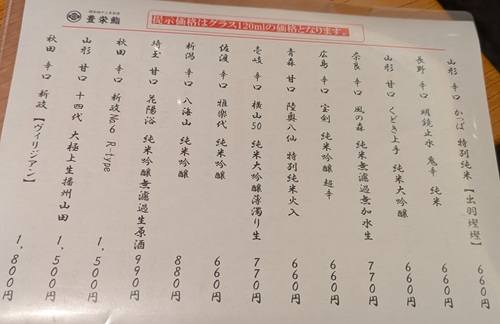 豊栄鮨
提示価格はグラス120mlの価格となります。
山形 辛口 かっぱ 特別純米【出羽燦燦】 660円
長野 辛口 明鏡止水 鬼辛 純米 660円
山形 甘口 くどき上手 純米大吟醸 660円
奈良 辛口 風の森 純米無濾過無加水生 770円
広島 辛口 宝剣 純米吟醸 超辛 660円
青森 甘口 陸奥八仙 特別純米火入 660円
壱岐 辛口 横山50 純米大吟醸薄濁り生 770円
佐渡 辛口 雅楽代 純米吟醸 660円
新潟 辛口 八海山 純米吟醸 880円
埼玉 甘口 花陽浴 純米吟醸無濾過生原酒 990円
秋田 辛口 新政No6 R-type 1,500円
山形 甘口 十四代 大極上生播州山田 1,500円
秋田 辛口 新政【ヴィリジアン】 1,800円